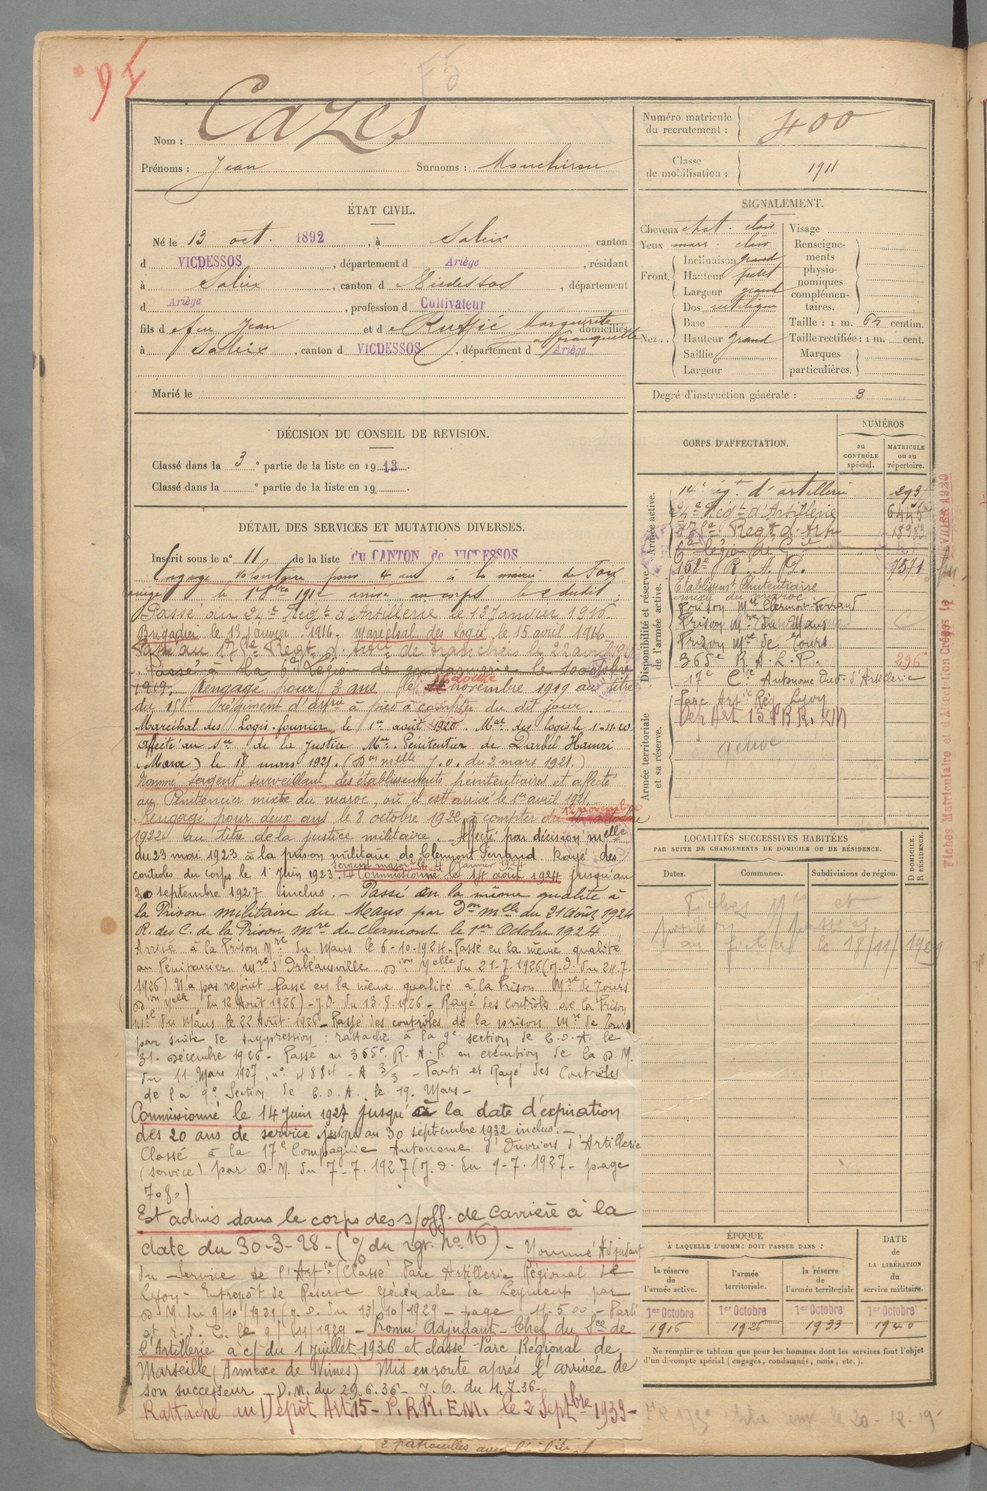 95
F5
Nom : Cazes
Prénoms : Jean Surnoms :
Numéro matricule du recrutement : 400
Classe de mobilisation : 1911
ÉTAT CIVIL.
Né le 13 oct. 1892, à Saleix canton
d VICDESSOS, département d Ariège, résidant
à Saleix, canton d Vicdessos, département
d Ariège, profession d Cultivateur
fils de feu Jean et de Marguerite domiciliés
à Saleix, canton d VICDESSOS, département d Ariège
Marié le
SIGNALEMENT.
Cheveux chat. clair
Yeux marr. clair
Front. Inclinaison grand
Hauteur petit
Largeur grand
Nez. Dos rectiligne
Base
Hauteur grand
Saillie
Largeur
Visage
Renseignements physionomiques complémentaires.
Taille : 1 m. 65 centim.
Taille rectifiée : 1 m. cent.
Marques particulières.
Degré d'instruction générale : 3
DÉCISION DU CONSEIL DE REVISION.
Classé dans la 3e partie de la liste en 1913.
Classé dans la e partie de la liste en 19
DÉTAIL DES SERVICES ET MUTATIONS DIVERSES.
Inscrit sous le n° 11 de la liste du CANTON de VICDESSOS
Engagé volontaire pour 4 ans à la mairie de Foix
le 1912 arrivé au corps le dudit
Passé au 24e Régt d'Artillerie le 13 Janvier 1916
Brigadier le 13 Janvier 1916. Maréchal des Logis le 15 avril 1916
Passé au 178e Regt d'Artie de tranchées le 22 avril
Passé à la 6e Légion de gendarmerie le 10 octobre
1919. Rengagé pour 3 ans le douze novembre 1919 au titre
du 158e Régiment d'artie à pied à compter du dit jour.
Maréchal des Logis fourrier le 1er août 1920. Mal des logis le 1-11-20
affecté au sce de la Justice Mre Pénitentier de Darbel Hamri
(Maroc) le 18 mars 1921. (Don melle J.O. du 2 mars 1921.)
Nommé sergent surveillant des établissements pénitentiaires et affecté
au Pénitencier mixte du maroc, où il est arrivé le 1er avril 1921.
Rengagé pour deux ans le 8 octobre 1922 à compter du 12 novembre
1922 au titre de la justice militaire. Affecté par décision melle
du 23 mai 1923 à la prison militaire de Clermont Ferrand. Rayé des
contrôles du corps le 1er Juin 1923. Commissionné le 14 août 1924 jusqu'au
30 septembre 1927 inclus. - Passé en la même qualité à
la Prison militaire du Mans par Don melle du 21 Août 1924
R. des C. de la Prison mre de Clermont le 1er Octobre 1924
Arrivé à la Prison Mre du Mans le 6-10-1924. Passé en la même qualité
au Pénitencier mre d'Orléansville Don Melle du 21-7-1926 (J.O. du 24.7.
1926) N'a pas rejoint Passé en la même qualité à la Prison Mre de Tours
(Don Melle du 12 Août 1926) - J.O. du 13.8.1926 - Rayé des contrôles de la Prison
Mre du Mans le 22 Août 1926 - Passé des contrôles de la prison Mre de Tours
par suite de suppression : rattaché à la 9e section de C.O.A. le
31. Décembre 1926 - Passé au 365e R. A. P. en exécution de la D. M.
du 11 Mars 1927, n° 4894 - A 3/3 - Parti et Rayé des Contrôles
de la 9e Section de C.O.A. le 19. Mars -
Commissionné le 14 Juin 1927 jusqu'à la date d'expiration
des 20 ans de service jusqu'au 30 septembre 1932 inclus. -
Classé à la 17e Compagnie Autonome d'Ouvriers d'Artillerie
(service) par D.M. du 7-7.1927 (J.O. du 9-7.1927 - page
7080)
Est admis dans le corps des s/off. de Carrière à la
date du 30-3-28 - (% du rgr. no 16) - Nommé Adjudant
du Service de l'Artie (Classé Parc Artillerie Régional de
Lyon - Entrepôt de Réserve Générale de Leymeux par
D.M. du 9/10/1929 (J.O. du 13/10/1929 - page 11.500 - Parti
et r.d. C. le 9/11/1929 - Promu Adjudant-Chef du Sce de
l'Artillerie à c/ du 1 Juillet 1936 et classé Parc Régional de
Marseille (Annexe de Nîmes) Mis en route après l'arrivée de
son successeur D.M. du 29.6.36 - J.O. du 4.7.36 -
Rattaché au Dépôt Art 15 - P.R.R.E.M. le 2 Septbre 1939 -
2 patrouilles
CORPS D'AFFECTATION.
NUMÉROS
au CONTRÔLE spécial.
MATRICULE ou au répertoire.
Armée active.
Disponibilité et réserve de l'armée active.
Armée territoriale et sa réserve.
14e régt d'artillerie 293
24e Régt d'Artillerie
178e Regt d'Arti
6e légion de Gie
158e R. A. P. 7571
Etablissnt Pénitentiaire mixte du maroc
Prison Mre Clermont-Ferrand
Prison Mre du Mans
Prison Mre de Tours
365e R.A.L.P. 296
17e Cie Autonome Ouv. d'Artillerie
Parc Artie Rég. Lyon
Dep Art 15 P.R.R.
active
Fiches Matriculaire et
LOCALITÉS SUCCESSIVES HABITÉES
PAR SUITE DE CHANGEMENTS DE DOMICILE OU DE RÉSIDENCE.
Dates. Communes. Subdivisions de région.
D DOMICILE. R RÉSIDENCE.
Fiches Mle et
passées
au fichier le 18/11/
ÉPOQUE
À LAQUELLE L'HOMME DOIT PASSER DANS :
la réserve de l'armée active.
l'armée territoriale.
la réserve de l'armée territoriale
DATE de LA LIBÉRATION du service militaire.
1er Octobre 1915
1er Octobre 1926
1er Octobre 1933
1er Octobre 1940
Ne remplir ce tableau que pour les hommes dont les services font l'objet
d'un décompte spécial (engagés, condamnés, omis, etc.).
le 20-12-19